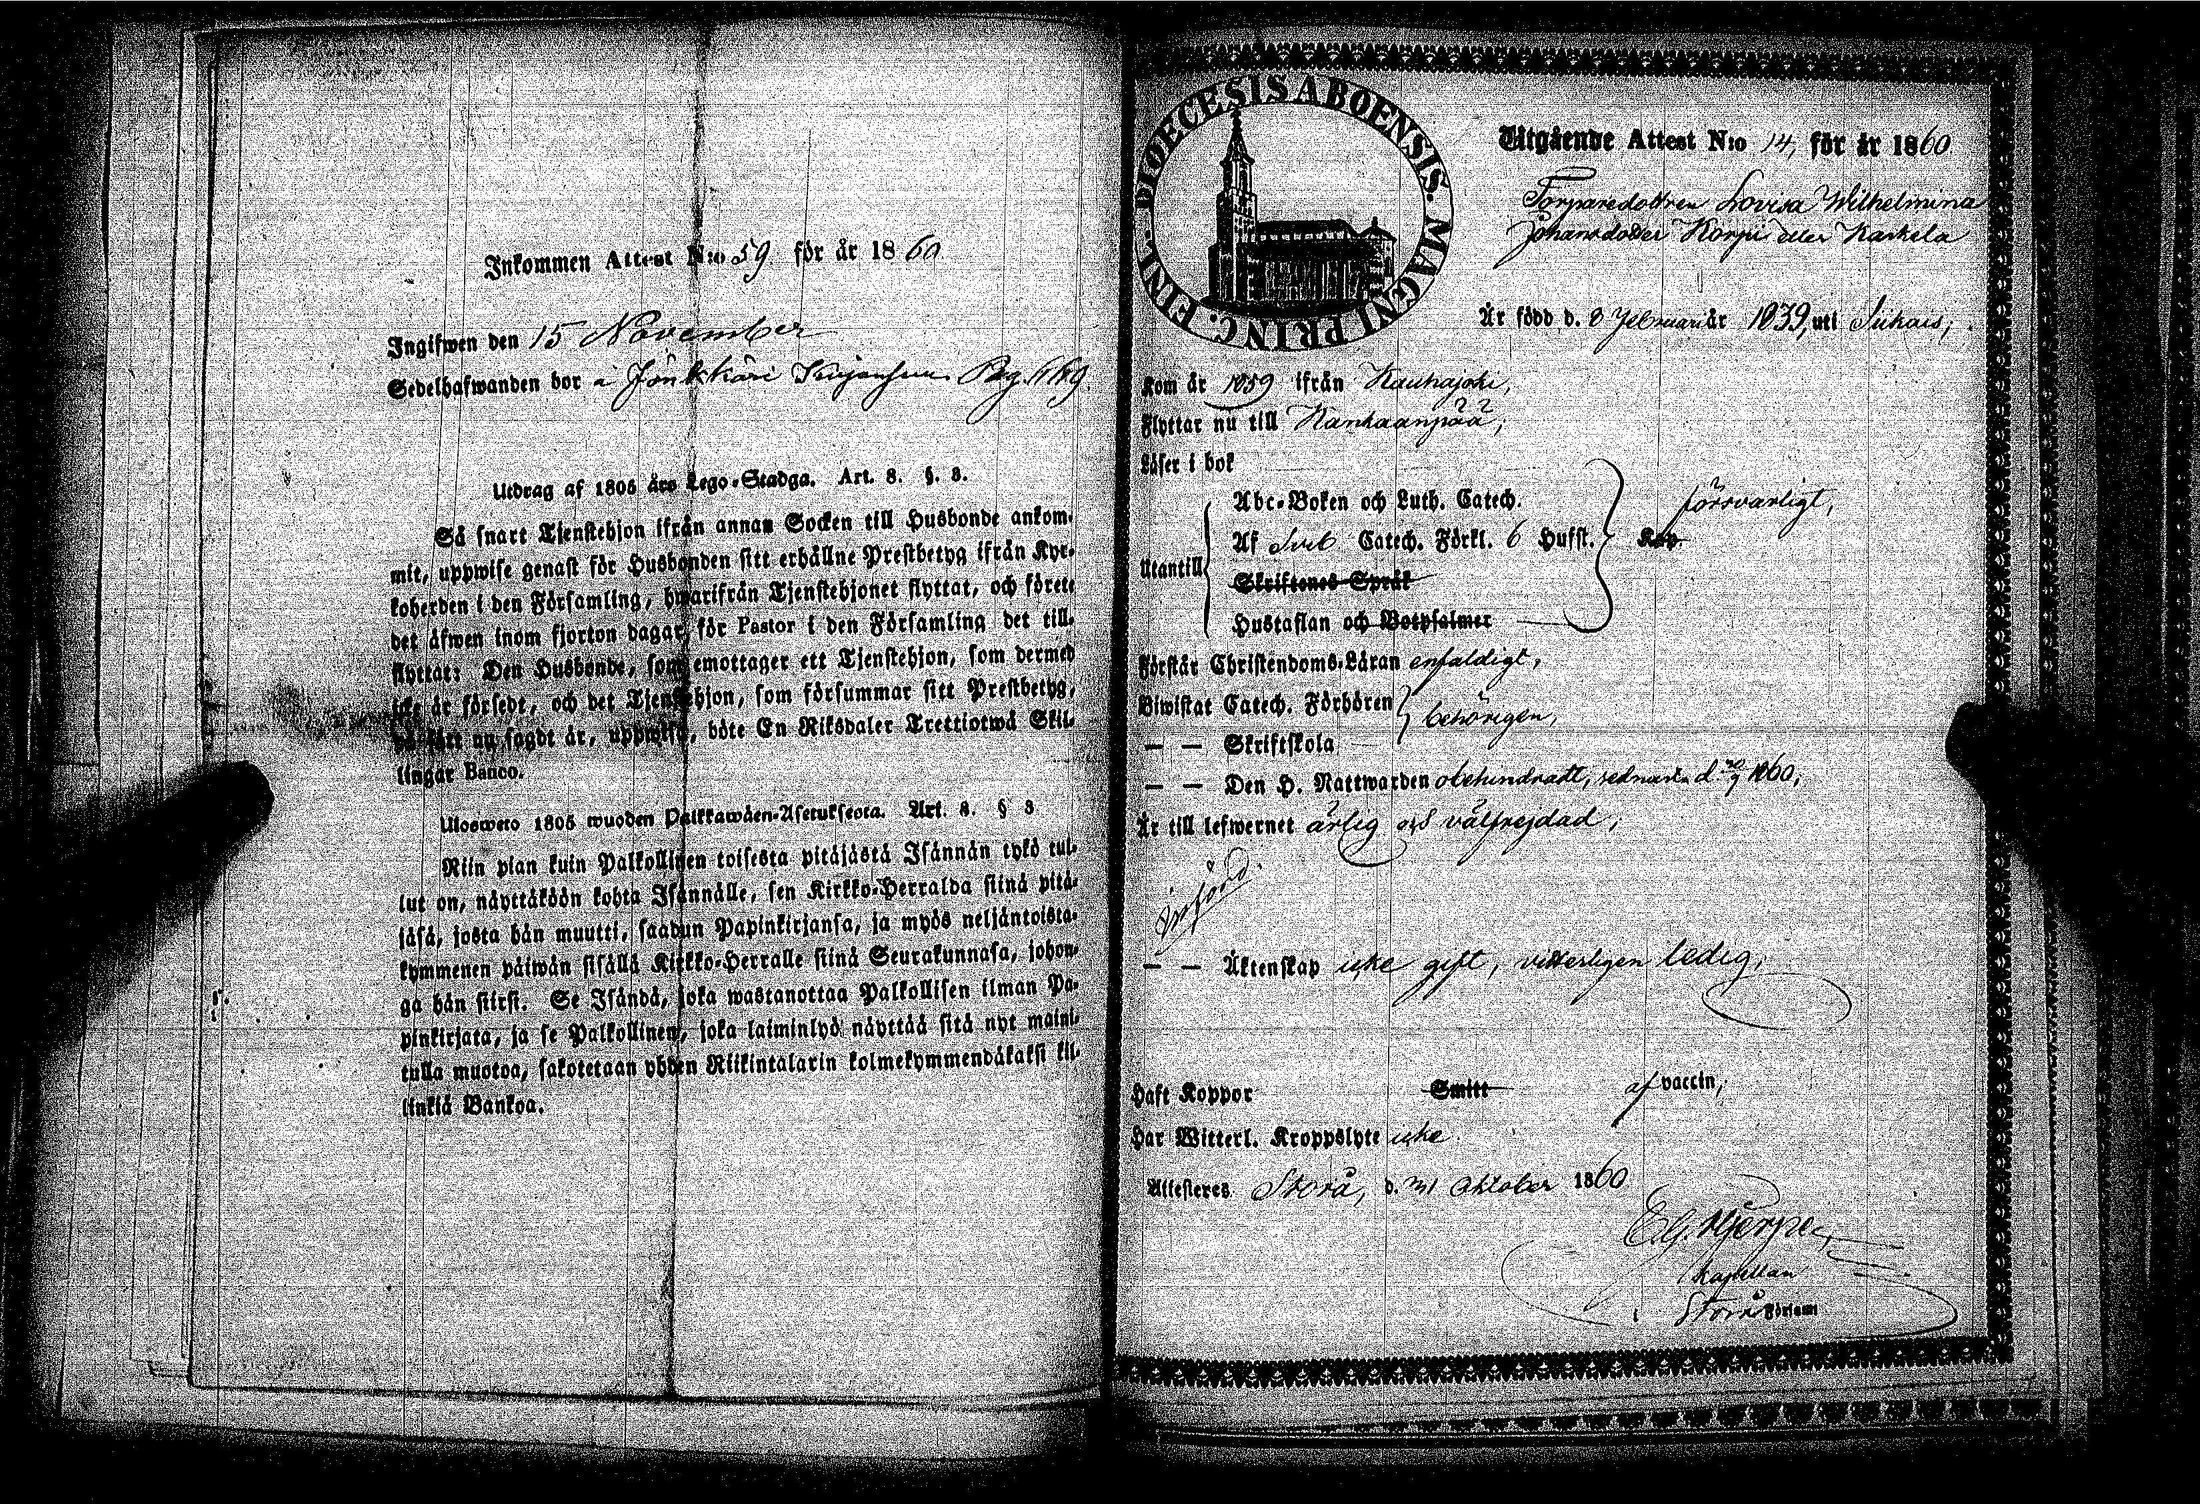 Inkommen Attest N:o 59 för år 1860
Ingifwen den 15 November
Sedelhafwanden bor å Jönkkäri Pag. 1169.
Utdrag af 1805 års Lego-Stadga. Art. 8. §. 3.
Så snart Tjenstehjon ifrån annan Socken till Husbonde ankom-
mit, uppwise genast för Husbonden sitt erhållne Prestbetyg ifrån Kyr-
koherden i den Församling, hwarifrån Tjenstehjonet flyttat, och förete
det äfwen inom fjorton dagar för Pastor i den Församling det till-
flyttat: Den Husbonde, som emottager ett Tjenstehjon, som dermed
icke är försedt, och det Tjenstehjon, som försummar sitt Prestbetyg,
på sätt nu sagdt är, uppwisa, böte En Riksdaler Trettiotwå Skil-
lingar Banco.
Ulosweto 1805 wuoden Palkkawäen-Asetuksesta. Art. 8. § 3
Niin pian kuin Palkollinen toisesta pitäjästä Isännän tykö tul-
lut on, näyttäköön kohta Isännälle, sen Kirkko-Herralda siinä pitä-
jäsä, josta hän muutti, saadun Papinkirjansa, ja myös neljäntoista-
kymmenen päiwän sisällä Kirkko-Herralle siinä Seurakunnasa, johon-
ga hän siirsi. Se Isändä, joka wastanottaa Palkollisen ilman Pa-
pinkirjata, ja se Palkollinen, joka laiminlyö näyttää sitä nyt maini-
tulla muotoa, sakotetaan yhden Riikintalarin kolmekymmendäkaksi kil-
linkiä Bankoa.
DIOECESIS ABOENSIS. MAGNI PRINC. FINL.
Utgående Attest N:o 14, för år 1860.
Torparedottren Lovisa Wilhelmina
Johansdotter Korpi eller Karkela
Är född d. 8 Februari år 1839, uti Siikais,
Kom år 1859 ifrån Kauhajoki,
Flyttar nu till Kankaanpää,
Läser i bok
Abc-Boken och Luth. Catech.
försvarligt,
Utantill
Af Sveb. Catech. Förkl. 6 Hufst.
Skriftenes Språk
Hustaflan och Botpsalmer
Förstår Christendoms-Läran enfaldigt,
Biwistat Catech. Förhören
behörigen,
— — Skriftskola
— — Den H. Nattwarden obehindradt, sednast d. 1860,
Är till lefwernet ärlig och välfrejdad,
införd.
— — Äktenskap icke gift, vitterligen ledig,
Haft Koppor Smitt af vaccin,
Har Witterl. Kroppslyte icke
Attesteres Storå, d. 31 Oktober 1860
Kapellan
i Storå Försam